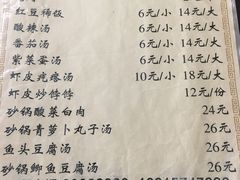 红豆稀饭 6元/小 14元/大
酸辣汤 6元/小 14元/大
番茄汤 6元/小 14元/大
紫菜蛋汤 6元/小 14元/大
虾皮疙瘩汤 10元/小 18元/大
虾皮炒饹馇 12元/份
砂锅酸菜白肉 24元
砂锅青萝卜丸子汤 26元
鱼头豆腐汤 26元
砂锅鲫鱼豆腐汤 26元